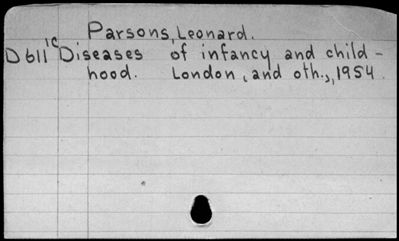 Parsons, Leonard.
D611 1c Diseases of infancy and child-
hood. London, and oth., 1954.